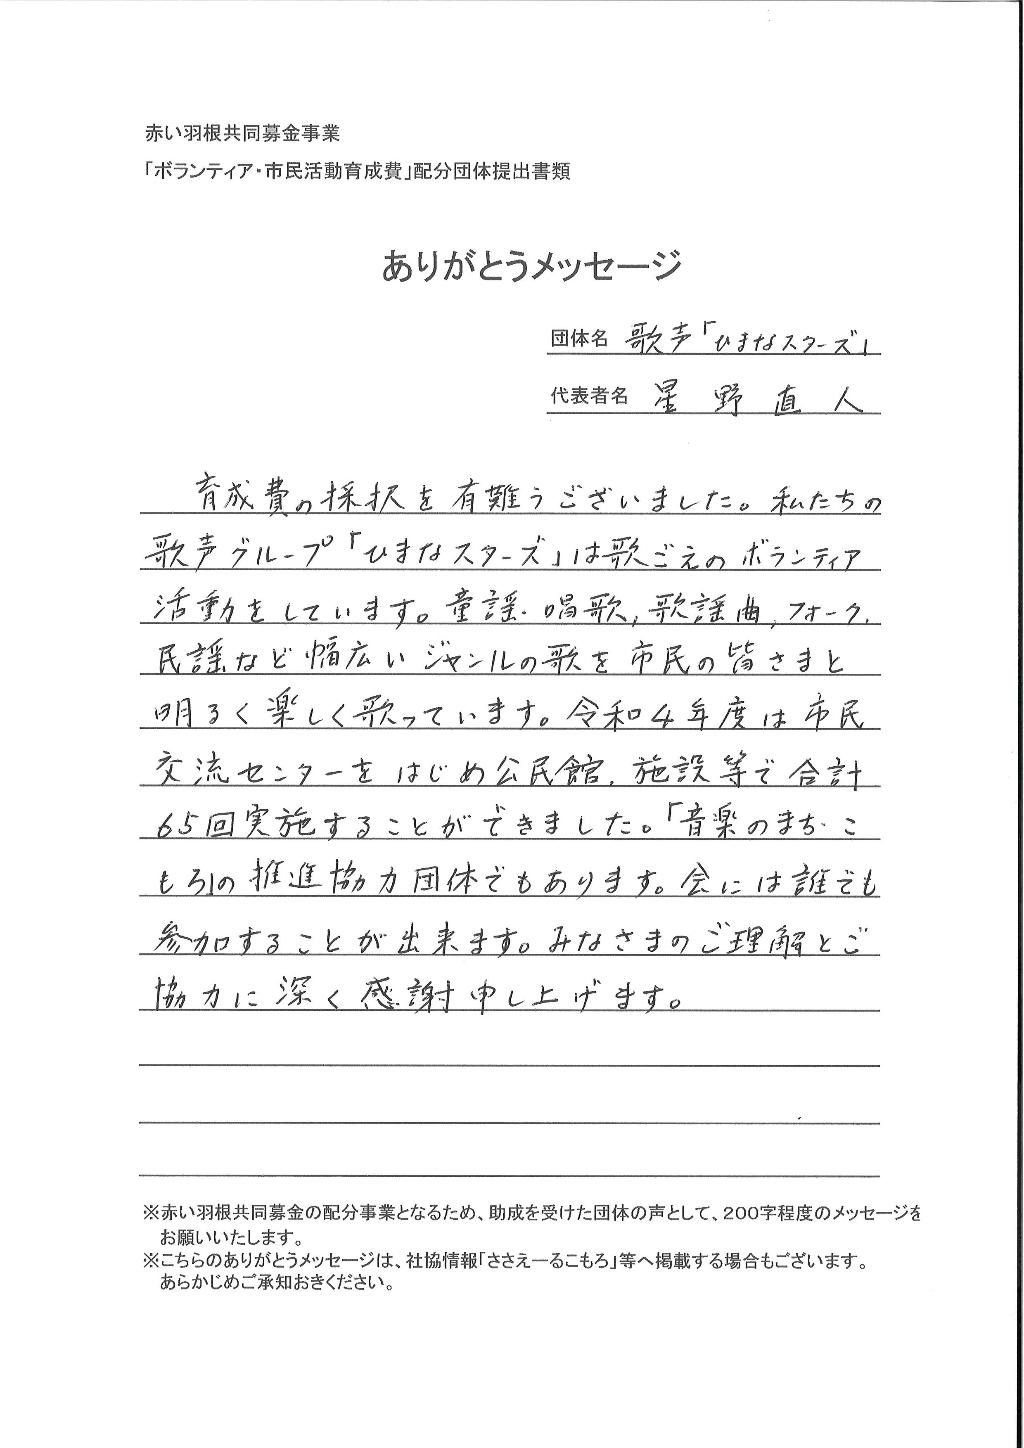 赤い羽根共同募金事業
「ボランティア・市民活動育成費」配分団体提出書類
ありがとうメッセージ
団体名 歌声「ひまなスターズ」
代表者名 星野直人
育成費の採択を有難うございました。私たちの
歌声グループ「ひまなスターズ」は歌ごえのボランティア
活動をしています。童謡・唱歌,歌謡曲,フォーク,
民謡など幅広いジャンルの歌を市民の皆さまと
明るく楽しく歌っています。令和4年度は市民
交流センターをはじめ公民館,施設等で合計
65回実施することができました。「音楽のまち・こ
もろ」の推進協力団体でもあります。会には誰でも
参加することが出来ます。みなさまのご理解とご
協力に深く感謝申し上げます。
※赤い羽根共同募金の配分事業となるため、助成を受けた団体の声として、200字程度のメッセージを
お願いいたします。
※こちらのありがとうメッセージは、社協情報「ささえーるこもろ」等へ掲載する場合もございます。
あらかじめご承知おきください。